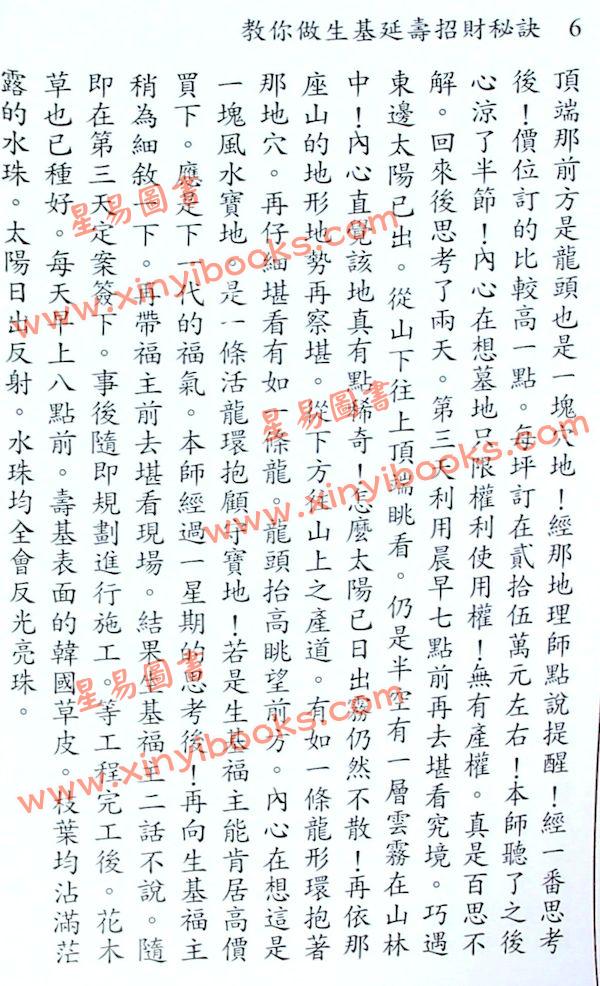 教你做生基延壽招財秘訣 6
頂端那前方是龍頭也是一塊穴地！經那地理師點說提醒！經一番思考
後！價位訂的比較高一點。每坪訂在貳拾伍萬元左右！本師聽了之後
心涼了半節！內心在想墓地只限權利使用權！無有產權。真是百思不
解。回來後思考了兩天。第三天利用晨早七點前再去堪看究境。巧遇
東邊太陽已出。從山下往上頂端眺看。仍是半空有一層雲霧在山林
中！內心直覺該地真有點稀奇！怎麼太陽已日出霧仍然不散！再依那
座山的地形地勢再察堪。從下方往山上之產道。有如一條龍形環抱著
那地穴。再仔細堪看有如一條龍。龍頭抬高眺望前方。內心在想這是
一塊風水寶地。是一條活龍環抱顧守寶地！若是生基福主能肯居高價
買下。應是下一代的福氣。本師經過一星期的思考後！再向生基福主
稍為細敘一下。再帶福主前去堪看現場。結果生基福主二話不說。隨
即在第三天定案簽下。事後隨即規劃進行施工。等工程完工後。花木
草也已種好。每天早上八點前。壽基表面的韓國草皮。枝葉均沾滿茫
露的水珠。太陽日出反射。水珠均全會反光亮珠。
星易圖書
www.xinyibooks.com
星易圖書
www.xinyibooks.com
星易圖書
www.xinyibooks.com